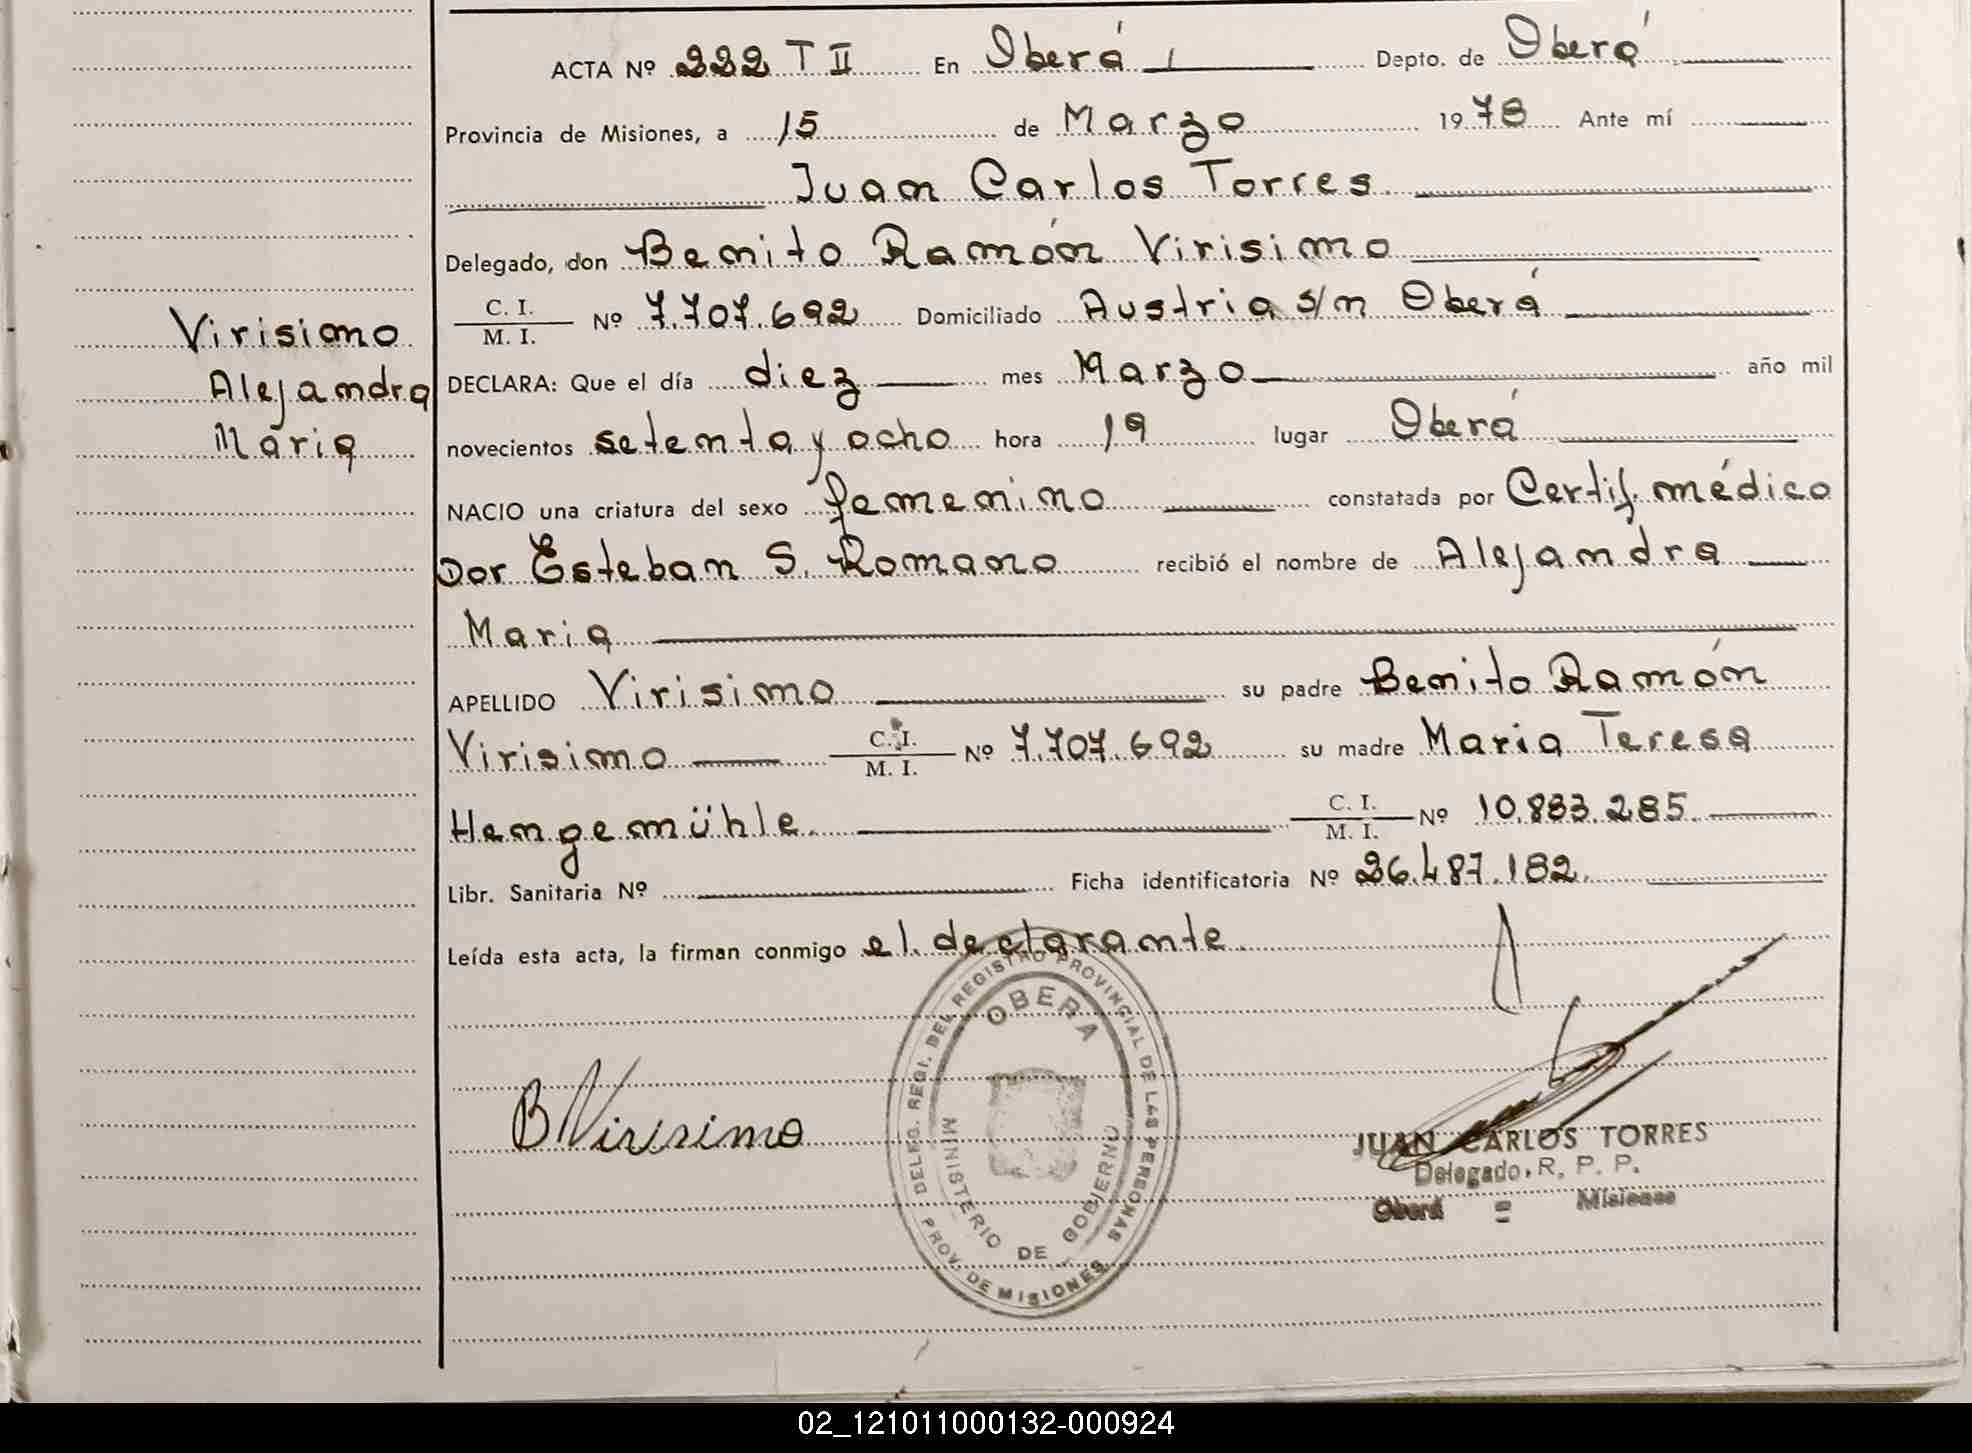 ACTA Nº 222 T II En Oberá, Depto. de Oberá
Provincia de Misiones, a 15 de Marzo 1978 Ante mí
Juan Carlos Torres
Delegado, don Benito Ramón Virisimo
C. I.
M. I. Nº 7.707.692 Domiciliado Austria s/n Oberá
Virisimo
Alejandra
Maria
DECLARA: Que el día diez mes Marzo año mil
novecientos setenta y ocho hora 19 lugar Oberá
NACIO una criatura del sexo femenino constatada por Certif. médico
Dor Esteban S. Romano recibió el nombre de Alejandra
Maria
APELLIDO Virisimo su padre Benito Ramón
Virisimo C. I. M. I. Nº 7.707.692 su madre Maria Teresa
Hengemühle. C. I. M. I. Nº 10.833.285.
Libr. Sanitaria Nº Ficha identificatoria Nº 26.487.182.
Leída esta acta, la firman conmigo el declarante.
DELEG. REGI. DEL REGISTRO PROVINCIAL DE LAS PERSONAS
OBERA
MINISTERIO DE GOBIERNO
PROV. DE MISIONES
B Virisimo
JUAN CARLOS TORRES
Delegado, R. P. P.
Oberá = Misiones
02_121011000132-000924